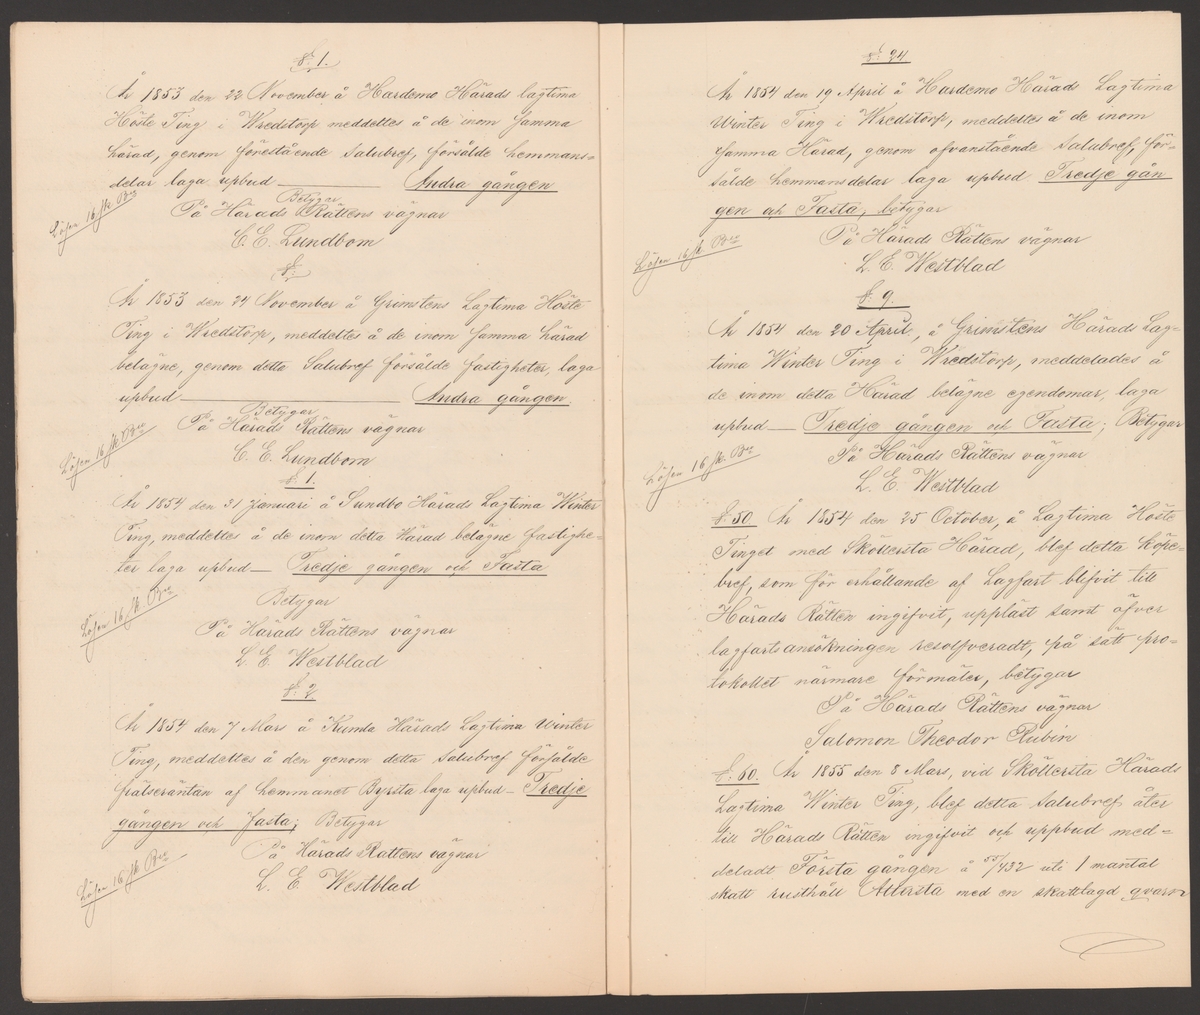 §. 1.
År 1853 den 22 November å Hardemo Härads lagtima
Höste Ting i Wredstorp meddeltes å de inom samma
härad, genom förestående salubref, försålde hemmans=
delar laga upbud — Andra gången
Betygar
Lösen 16 sk. Bco
På Härads Rättens vägnar
C. E. Lundbom
§.
År 1853 den 24 November å Grimstens Lagtima Höste
Ting i Wredstorp, meddeltes å de inom samma härad
belägne, genom detta Salubref försålde fastigheter, laga
upbud — Andra gången
Betygar
På Härads Rättens vägnar
Lösen 16 sk. Bco
C. E. Lundbom
§. 1.
År 1854 den 31 Januari å Sundbo Härads Lagtima Winter
Ting, meddeltes å de inom detta Härad belägne fastighe-
ter laga upbud — Tredje gången och Fasta
Betygar
Lösen 16 sk. Bco
På Härads Rättens vägnar
L. E. Westblad
§. 2.
År 1854 den 7 Mars å Kumla Härads Lagtima Winter
Ting, meddeltes å den genom detta salubref försålde
frälseräntan af hemmanet Byrsta laga upbud — Tredje
gången och fasta; Betygar
På Härads Rättens vägnar
Lösen 16 sk. Bco
L. E. Westblad
§. 24
År 1854 den 19 April å Hardemo Härads Lagtima
Winter Ting i Wredstorp, meddeltes å de inom
samma Härad, genom ofvanstående Salubref, för-
sålde hemmansdelar laga upbud Tredje gån
gen och Fasta, betygar
På Härads Rättens vägnar
Lösen 16 sk. Bco
L. E. Westblad
§. 9.
År 1854 den 20 April, å Grimstens Härads Lag-
tima Winter Ting i Wredstorp, meddelades å
de inom detta Härad belägne egendomar, laga
upbud — Tredje gången och Fasta; Betygar
På Härads Rättens vägnar
Lösen 16 sk. Bco
L. E. Westblad
§. 50. År 1854 den 25 October, å Lagtima Höste
Tinget med Sköllersta Härad, blef detta köpe-
bref, som för erhållande af Lagfart blifvit till
Härads Rätten ingifvit, uppläst samt öfver
lagfartsansökningen resolfveradt, på sätt pro-
tokollet närmare förmäler, betygar
På Härads Rättens vägnar
Salomon Theodor Rubin
§. 60. År 1855 den 8 Mars, vid Sköllersta Härads
Lagtima Winter Ting, blef detta salubref åter
till Härads Rätten ingifvit och uppbud med=
deladt Första gången å 55/432 uti 1 mantal
skatt rusthåll Attersta med en skattlagd qvarn